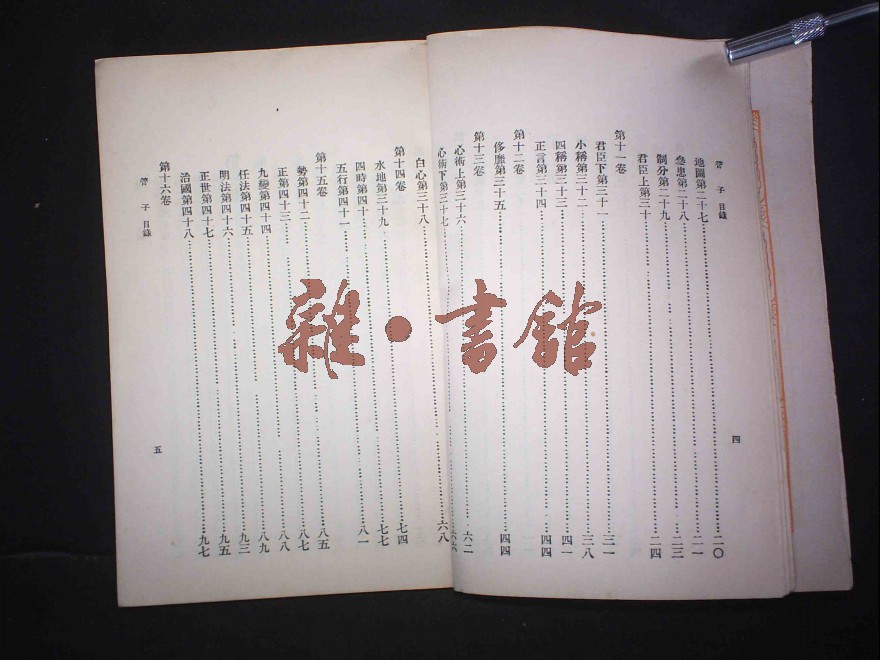 管子 目錄
四
地圖第二十七……二〇
參患第二十八……二一
制分第二十九……二三
君臣上第三十……二四
第十一卷
君臣下第三十一……三一
小稱第三十二……三八
四稱第三十三……四一
正言第三十四……四四
第十二卷
侈靡第三十五……四四
第十三卷
心術上第三十六……六二
心術下第三十七……六六
白心第三十八……六八
第十四卷
水地第三十九……七四
四時第四十……七七
五行第四十一……八一
第十五卷
勢第四十二……八五
正第四十三……八七
九變第四十四……八八
任法第四十五……八九
明法第四十六……九三
正世第四十七……九五
治國第四十八……九七
第十六卷
管子 目錄
五
雜·書館